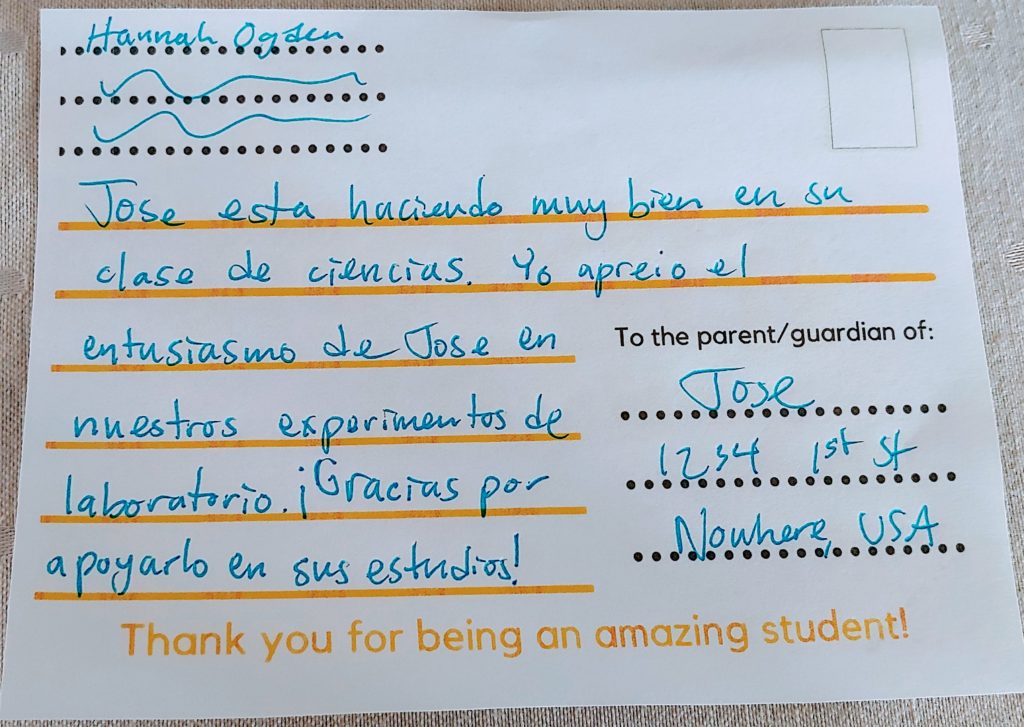 Hannah Ogden
Jose esta haciendo muy bien en su
clase de ciencias. Yo apreio el
entusiasmo de Jose en
nuestros experimentos de
laboratorio. ¡Gracias por
apoyarlo en sus estudios!
To the parent/guardian of:
Jose
1234 1st St
Nowhere, USA
Thank you for being an amazing student!